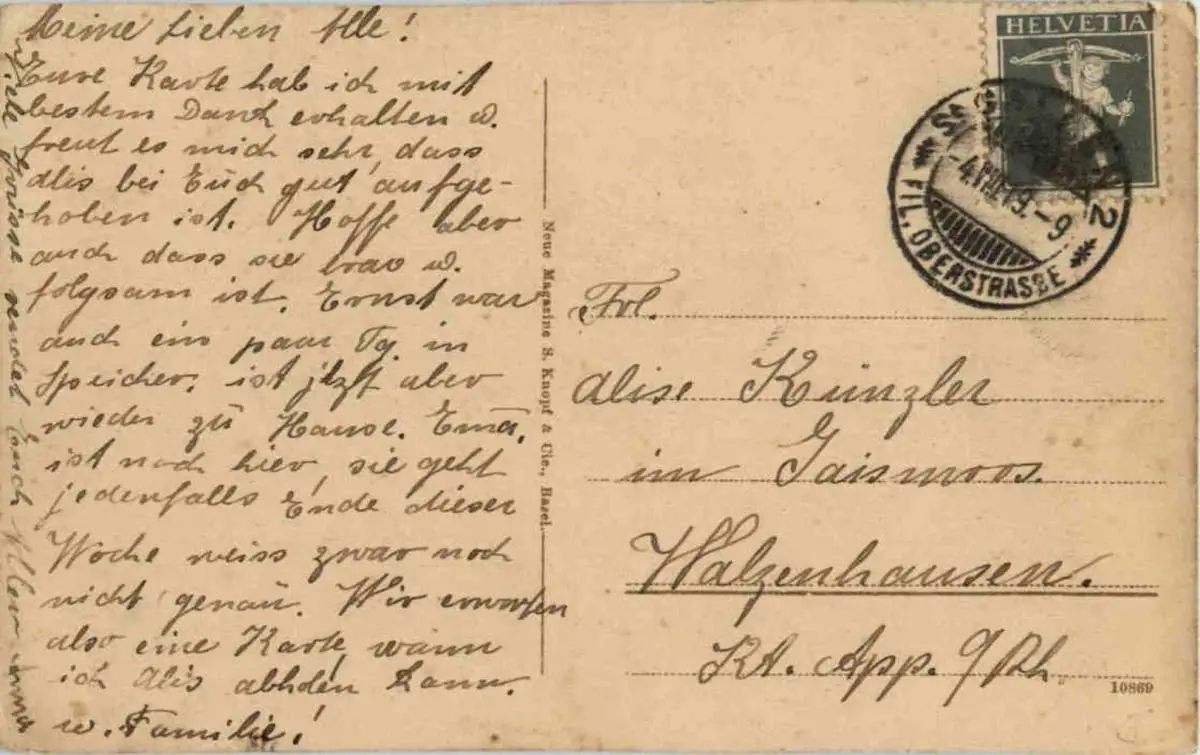 Meine Lieben Alle!
Eure Karte hab ich mit
bestem Dank erhalten u.
freut es mich sehr, dass
Alis bei Euch gut aufge-
hoben ist. Hoffe aber
auch dass sie brav u.
folgsam ist. Ernst war
auch ein paar Tg. in
Speicher, ist jetzt aber
wieder zu Hause. Emā,
ist noch hier, sie geht
jedenfalls Ende dieser
Woche weiss zwar noch
nicht genau. Wir erwarten
also eine Karte, wann
ich Alis abhden kann.
u. Familie!
Viele Grüsse sendet Euch Allen
Neue Magazine S. Knopf & Cie., Basel.
HELVETIA
2
-4.VIII.19.-9
FIL. OBERSTRASSE
Frl.
Alise Künzler
im Gaismoos.
Walzenhausen.
Kt. App. A/Rh.
10869